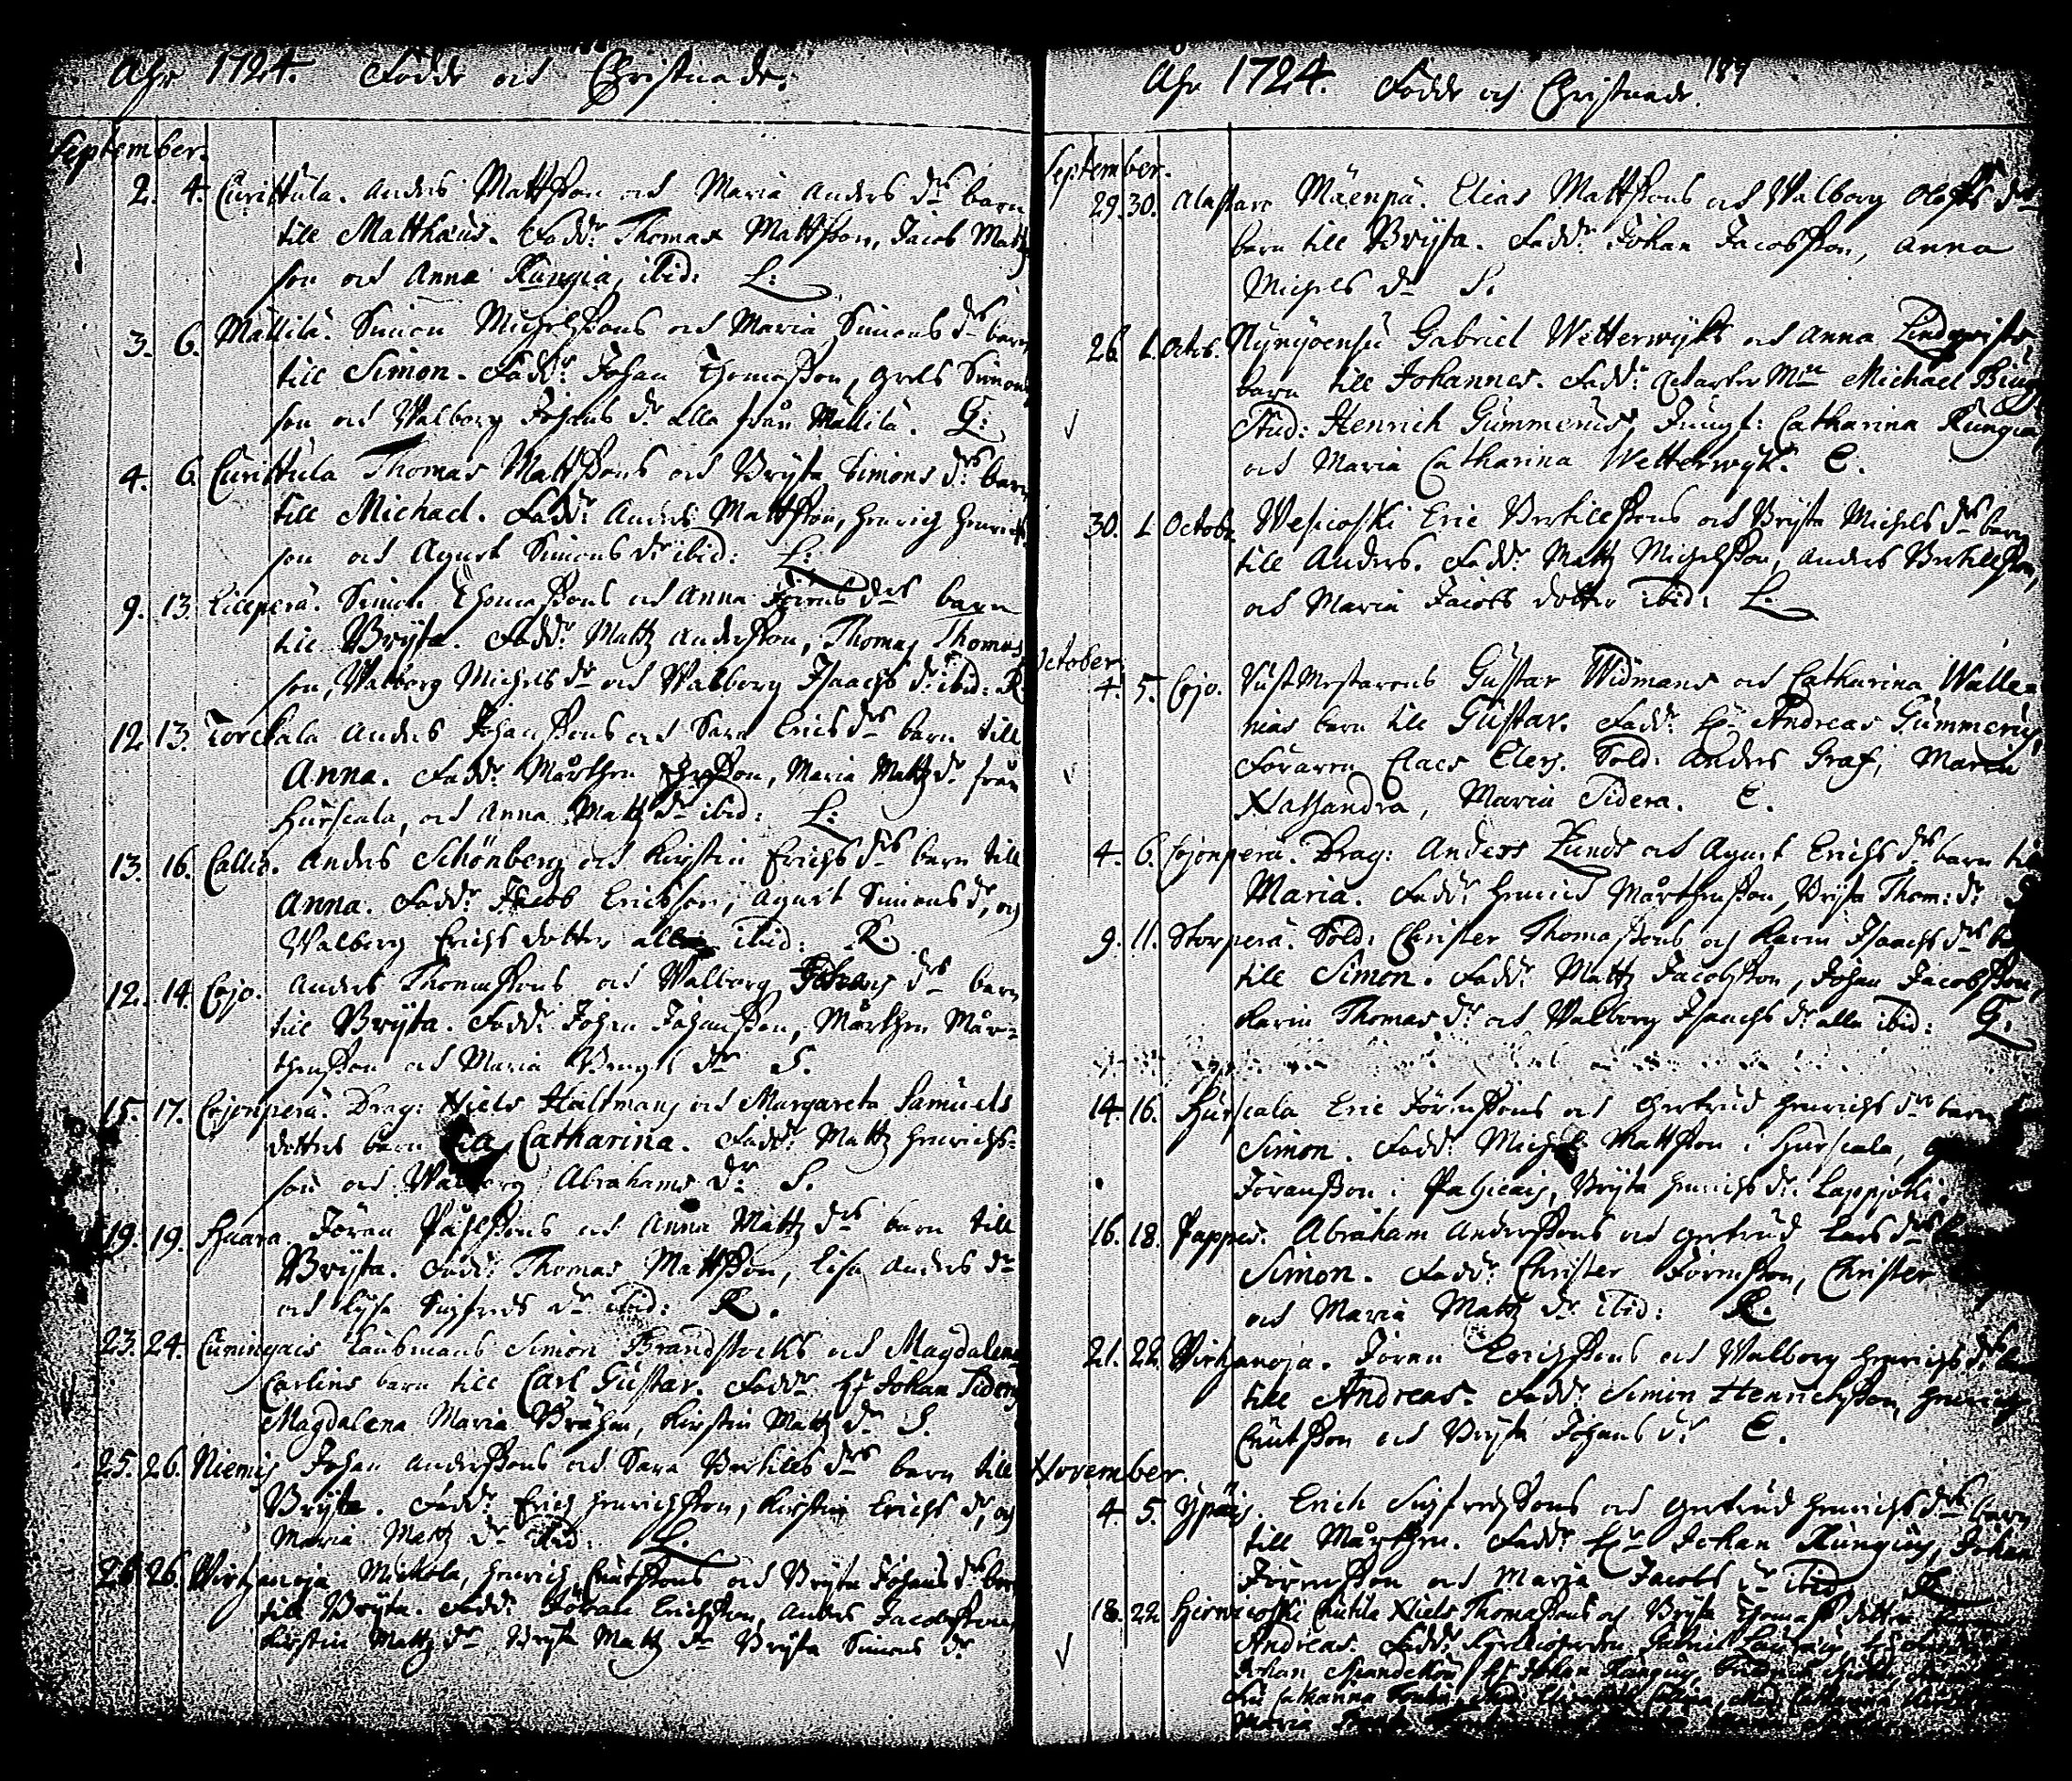 Åhr 1724. Födde och Christnade.
September.
2. 4. Curittula. Anders Mattsson och Maria Anders dr barn
till Matthæus. Fadd: Thomas Mattsson, Jacob Matts
son och Anna Rungia, ibid: L:
3. 6. Mällilä. Simon Michelssons och Maria Simons dr barn
till Simon. Fadd: Johan Thomasson, Grels Simons
son och Walborg Johans dr alla från Mällilä. G:
4. 6. Curittula Thomas Mattssons och Bryta Simons dr barn
till Michael. Fadd: Anders Mattsson, Henrich Henrichs
son och Agnet Simons dr ibid: L:
9. 13. Lilleperä. Simon Thomassons och Anna Jörens drs barn
till Bryta. Fadd: Matts Andersson, Thomas Thomas
son, Walborg Michels dr och Walborg Isaachs dr ibid: R.
12. 13. Torckala Anders Johanssons och Sara Erics drs barn till
Anna. Fadd: Mårthen, Maria Matts dr från
Hurscala, och Anna Matts dr ibid: L:
13. 16. Callio. Anders Schönberg och Kirstin Erichs drs barn till
Anna. Fadd: Jacob Ericsson, Agnet Simons dr, och
Walborg Erichs dotter alla ibid: R.
12. 14. Cojo. Anders Thomassons och Walborg Johans drs barn
till Bryta. Fadd: Johan Johansson, Mårthen Mår-
thensson och Maria Bengts dr S.
15. 17. Cojonperä. Drag: Niels Hultmans och Margareta Samuels
dotters barn till Catharina. Fadd: Matts Henrichs-
son och Walborg Abrahams dr S.
19. 19. Haara. Jören Påhlssons och Anna Matts drs barn till
Bryta. Fadd: Thomas Mattsson, Lisa Anders dr
och Lysa Sigfreds dr ibid: R.
23. 24. Cuningais Simon Brandstocks och Magdalena
Carlins barn till Carl Gustav. Fadd: Hr Johan Sidens
Magdalena Maria, Kirstin Matts dr S.
25. 26. Niemis Johan Anderssons och Sara Bertills drs barn till
Bryta. Fadd: Erich Henrichsson, Kirstin Erichs dr, och
Maria Matts dr ibid. L.
26. Wirtzanoja Mickola, Henrich Cnutssons och Bryta Johans dr barn
till Bryta. Fadd: Jöran Erichsson, Anders Jacobsson,
Kirstin Matts dr Bryta Matts dr Bryta Simons dr
Åhr 1724. Födde och Christnade. 187
September.
29. 30. Alastaro Mäenpä. Elias Mattssons och Walborg Olofs drs
barn till Bryta. Fadd: Johan Jacobsson, Anna
Michels dr S.
26. 1. Octob. Nynjoensu Gabriel Wetterwyks och Anna Lindqvists
barn till Johannes. Fadd: Michael
Stud: Henrich Gummerus, Jungf: Catharina Rungia
och Maria Catharina Wetterwyk. C.
30. 1 Octobr. Wesicoski Eric Bertilssons och Bryta Michels drs barn
till Anders. Fadd: Matts Michelsson, Anders Bertillsson,
och Maria Jacobs dotter ibid: L.
October.
4. 5. Cojo. Gustav Widmans och Catharina Walle-
nias barn till Gustav. Fadd: Hr Andreas Gummerus,
Föraren Claes Elers. Sold: Anders Graf, Maria
Nassandra, Maria Sidera. C.
4. 6. Cojonperä. Drag: Anders Lunds och Agnet Erichs drs barn till
Maria. Fadd: Henrich Mårthensson, Bryta Thom: dr S
9. 11. Storperä. Sold: Christer Thomassons och Karin Isaachs drs
till Simon. Fadd: Matts Jacobsson, Johan Jacobsson,
Karin Thomas dr och Walborg Isaachs dr alla ibid: G.
14. 16. Hurscala Eric Jörenssons och Gertrud Henrichs drs barn
Simon. Fadd: Michel Mattsson i Hurscala,
Jöransson i Pahicais, Bryta Henrichs dr. Lappjoki.
16. 18. Pappis. Abraham Anderssons och Gertrud Lars drs
Simon. Fadd: Christer Jörensson, Christer
och Maria Matts dr ibid: R.
21. 22. Wirtzanoja. Jören Erichssons och Walborg Henrichs drs
till Andreas. Fadd: Simon Henrichsson, Henrich
Cnutsson och Bryta Johans dr C.
November.
4 5. Ypäis. Erich Sigfredssons och Gertrud Henrichs drs barn
till Mårthen. Fadd: Hr Johan Rungius, Johan
Jörensson och Maria Jacobs dr ibid R
18. 22. Hirwicoski Cnutila Niels Thomassons och Bryta Thomas dotter
Andreas. Fadd:
Johan Hr Johan Rungius,
Fru Catharina
Maria